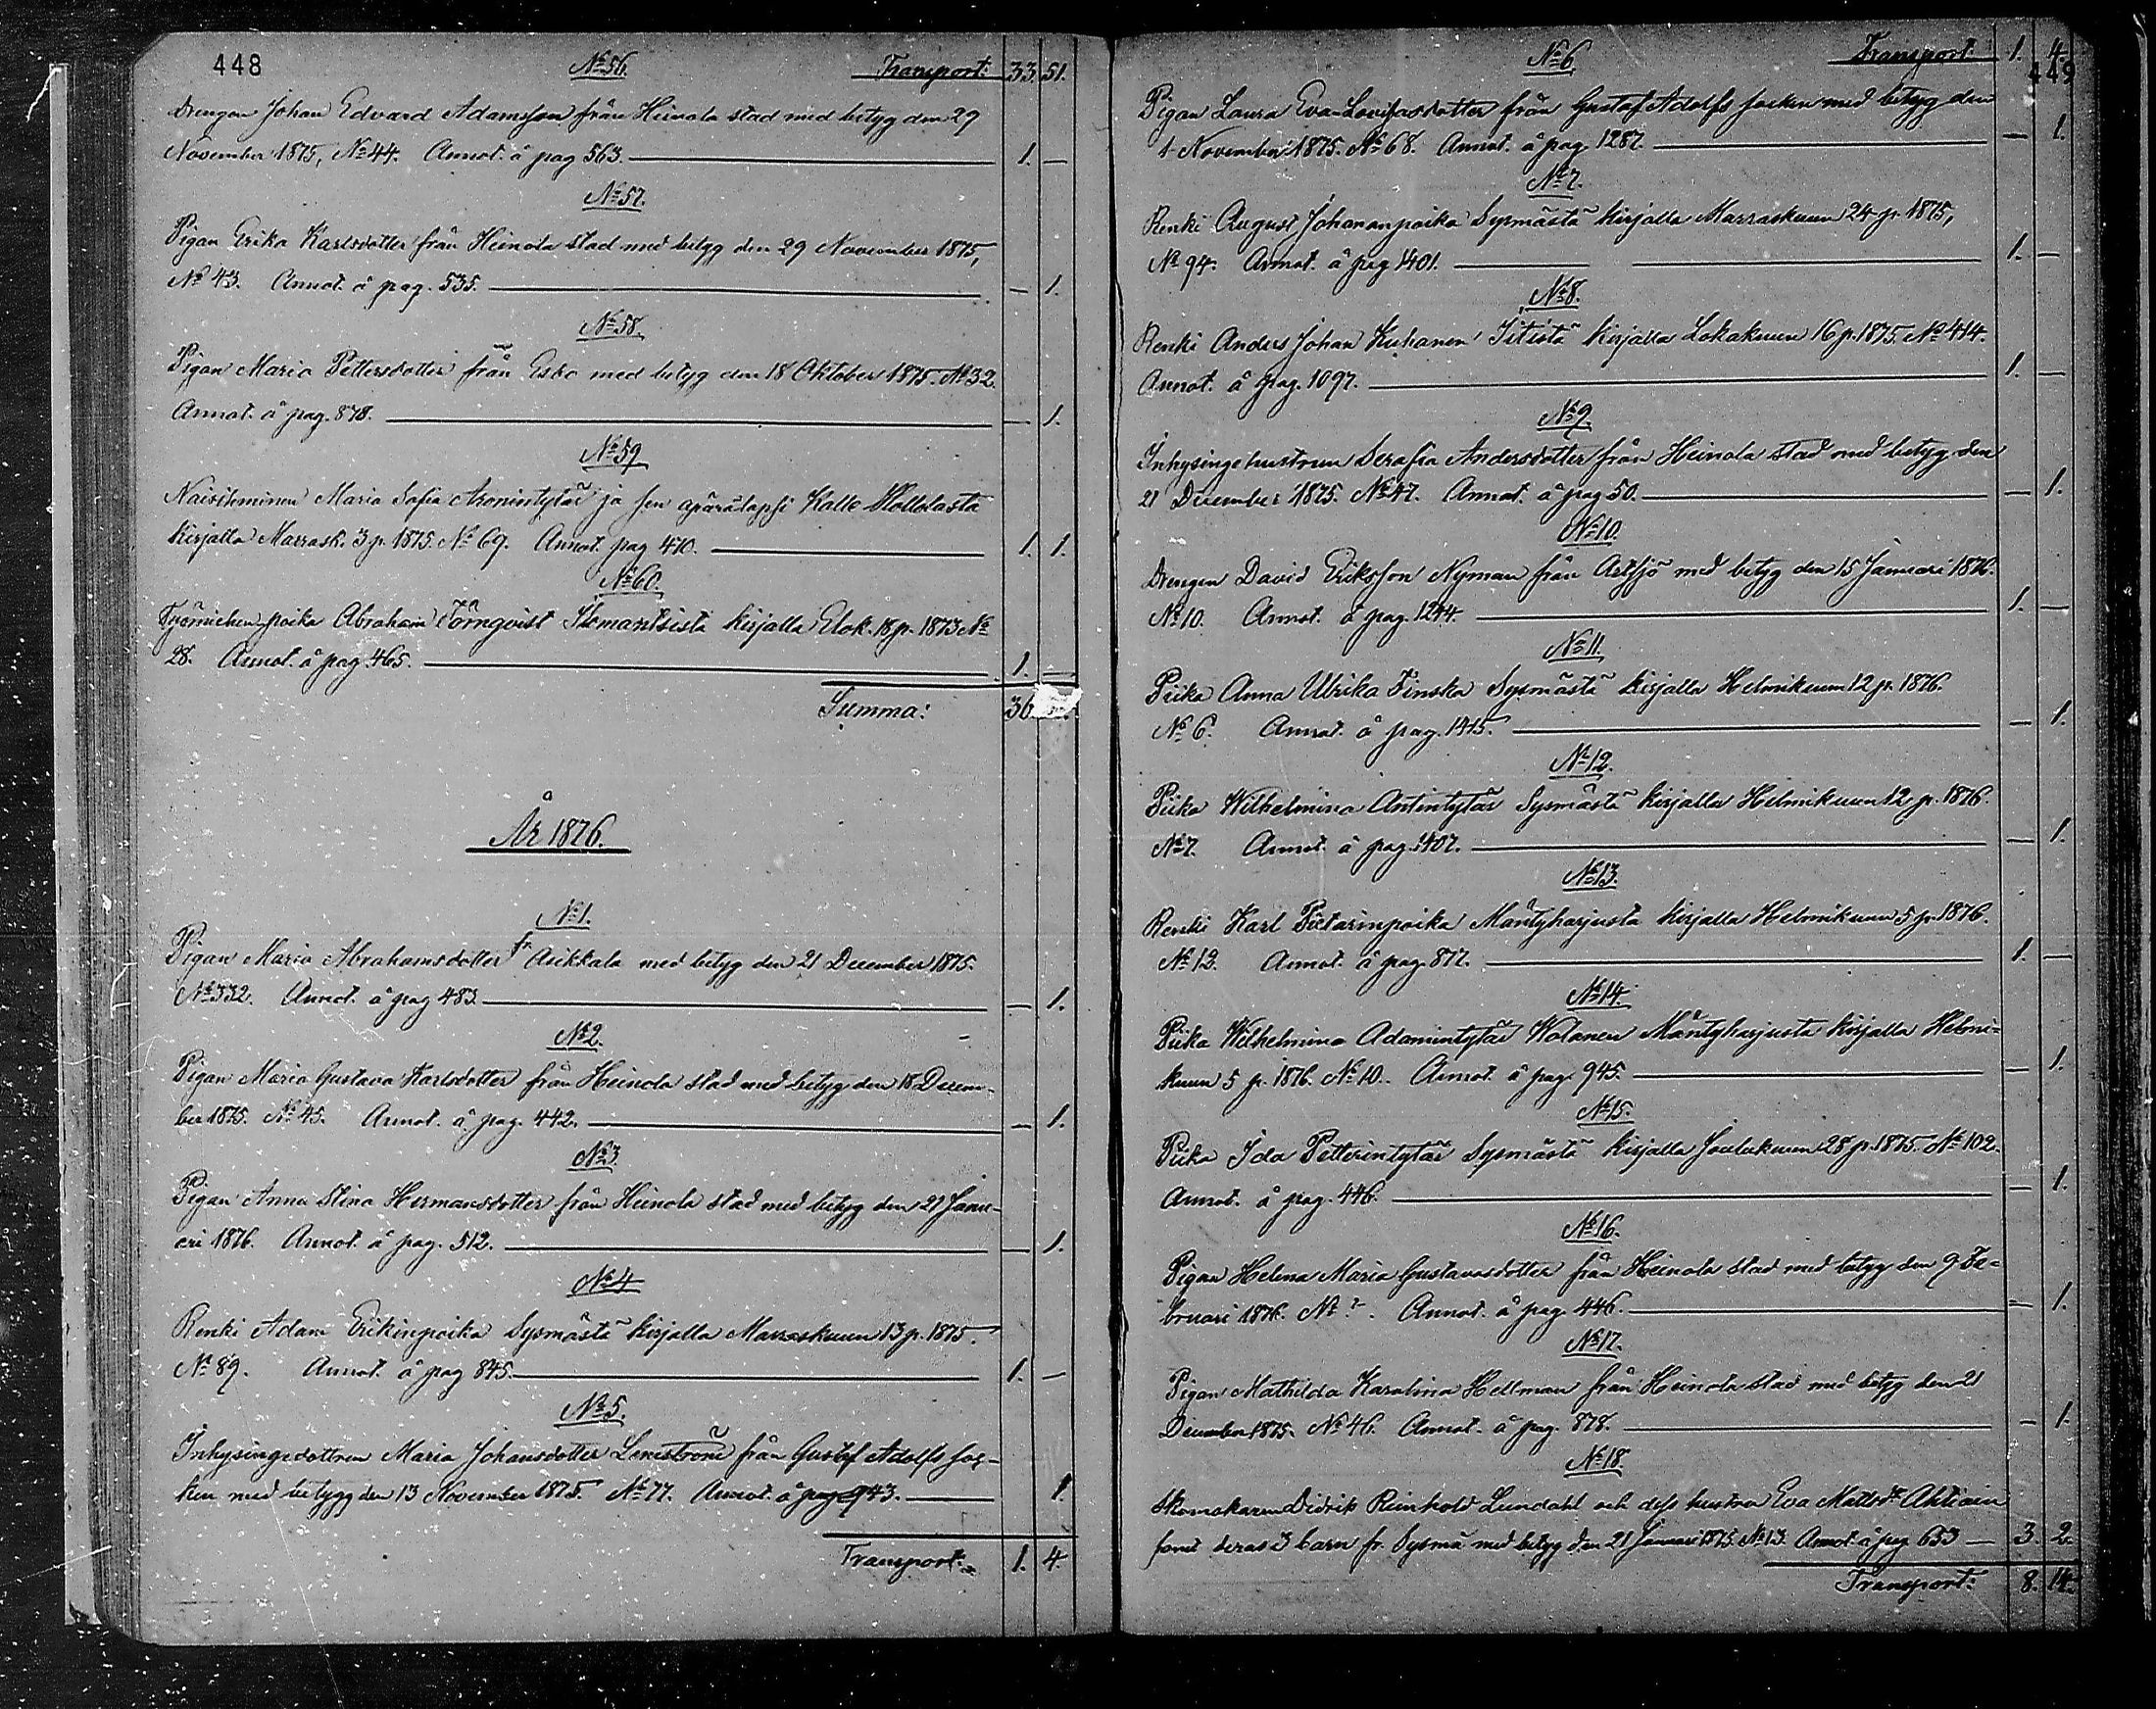 448
№ 56. Transport: 33. 51.
Drengen Johan Edvard Adamsson från Heinola stad med betyg den 29
November 1875, № 44. Annot. å pag 563. 1. —
№ 57.
Pigan Erika Karlsdotter från Heinola stad med betyg den 29 November 1875,
№ 43. Annot. å pag. 535. — 1.
№ 58.
Pigan Maria Pettersdotter från Esbo med betyg den 18 Oktober 1875. № 32.
Annot. å pag. 878. — 1.
№ 59
Naisihminen Maria Sofia Aronintytär ja sen äpärälapsi Kalle Hollolasta
kirjalla Marrask. 3 p. 1875. № 69. Annot. pag 410. 1. 1.
№ 60.
Työmiehen poika Abraham Törnqvist Ilomantsista kirjalla Elok. 18 p. 1873 №
28. Annot. å pag. 465. 1. —
Summa: 36
År 1876.
№ 1.
Pigan Maria Abrahamsdotter fr. Asikkala med betyg den 21 December 1875.
№ 332. Annot. å pag 483. — 1.
№ 2.
Pigan Maria Gustava Karlsdotter från Heinola stad med betyg den 18 Decem-
ber 1875. № 45. Annot. å pag. 442. — 1.
№ 3.
Pigan Anna Stina Hermansdotter från Heinola stad med betyg den 21 Janu-
ari 1876. Annot. å pag. 512. — 1.
№ 4
Renki Adam Erikinpoika Sysmästä kirjalla Marraskuun 13 p. 1875.
№ 89. Annot. å pag 845. 1. —
№ 5.
Inhysingedottren Maria Johansdotter från Gustaf Adolfs soc-
ken med betygg den 13 November 1875. № 77. Annot. å pag 943. 1.
Transport: 1. 4.
449
№ 6 Transport: 1. 4.
Pigan Laura Eva Lovisasdotter från Gustaf Adolfs socken med betyg den
1 November 1875. № 68. Annot. å pag. 1287. — 1.
№ 7.
Renki August Johananpoika Sysmästä kirjalla Marraskuun 24 p. 1875,
№ 94. Annot. å pag 1401. 1. —
№ 8.
Renki Anders Johan Kuhanen Iitistä kirjalla Lokakuun 16 p. 1875. № 414.
Annot. å pag. 1097. 1. —
№ 9.
Inhysingehustrun Serafia Andersdotter från Heinola stad med betyg den
21 December 1875. № 47. Annot. å pag 50. — 1.
№ 10.
Drengen David Eriksson Nyman från Artsjö med betyg den 15 Januari 1876.
№ 10. Annot. å pag. 1244. 1. —
№ 11.
Piika Anna Ulrika Finska Sysmästä kirjalla Helmikuun 12 p. 1876.
№ 6. Annot. å pag. 1415. — 1.
№ 12.
Piika Wilhelmina Antintytär Sysmästä kirjalla Helmikuun 12 p. 1876.
№ 7. Annot. å pag. 1407. — 1.
№ 13.
Renki Karl Pietarinpoika Mäntyharjusta kirjalla Helmikuun 5 p. 1876.
№ 12. Annot. å pag. 877. 1. —
№ 14.
Piika Wilhelmina Adamintytär Wolanen Mäntyharjusta kirjalla Helmi-
kuun 5 p. 1876. № 10. Annot. å pag. 945. — 1.
№ 15.
Piika Ida Petterintytär Sysmästä kirjalla Joulukuun 28 p. 1875. № 102.
Annot. å pag. 446. — 1.
№ 16.
Pigan Helena Maria Gustavasdotter från Heinola stad med betyg den 9 Fe-
bruari 1876. № ?. Annot. å pag. 446. — 1.
№ 17.
Pigan Mathilda Karolina Hellman från Heinola stad med betyg den 21
December 1875. № 46. Annot. å pag. 878. — 1.
№ 18.
Skomakaren Didrik Reinhold Lundahl och dess hustru Eva Mattsdr Ahtiain
samt deras 3 barn fr. Sysmä med betyg den 21 Januari 1875. № 13. Annot å pag 653 — 3. 2.
Transport: 8. 14.